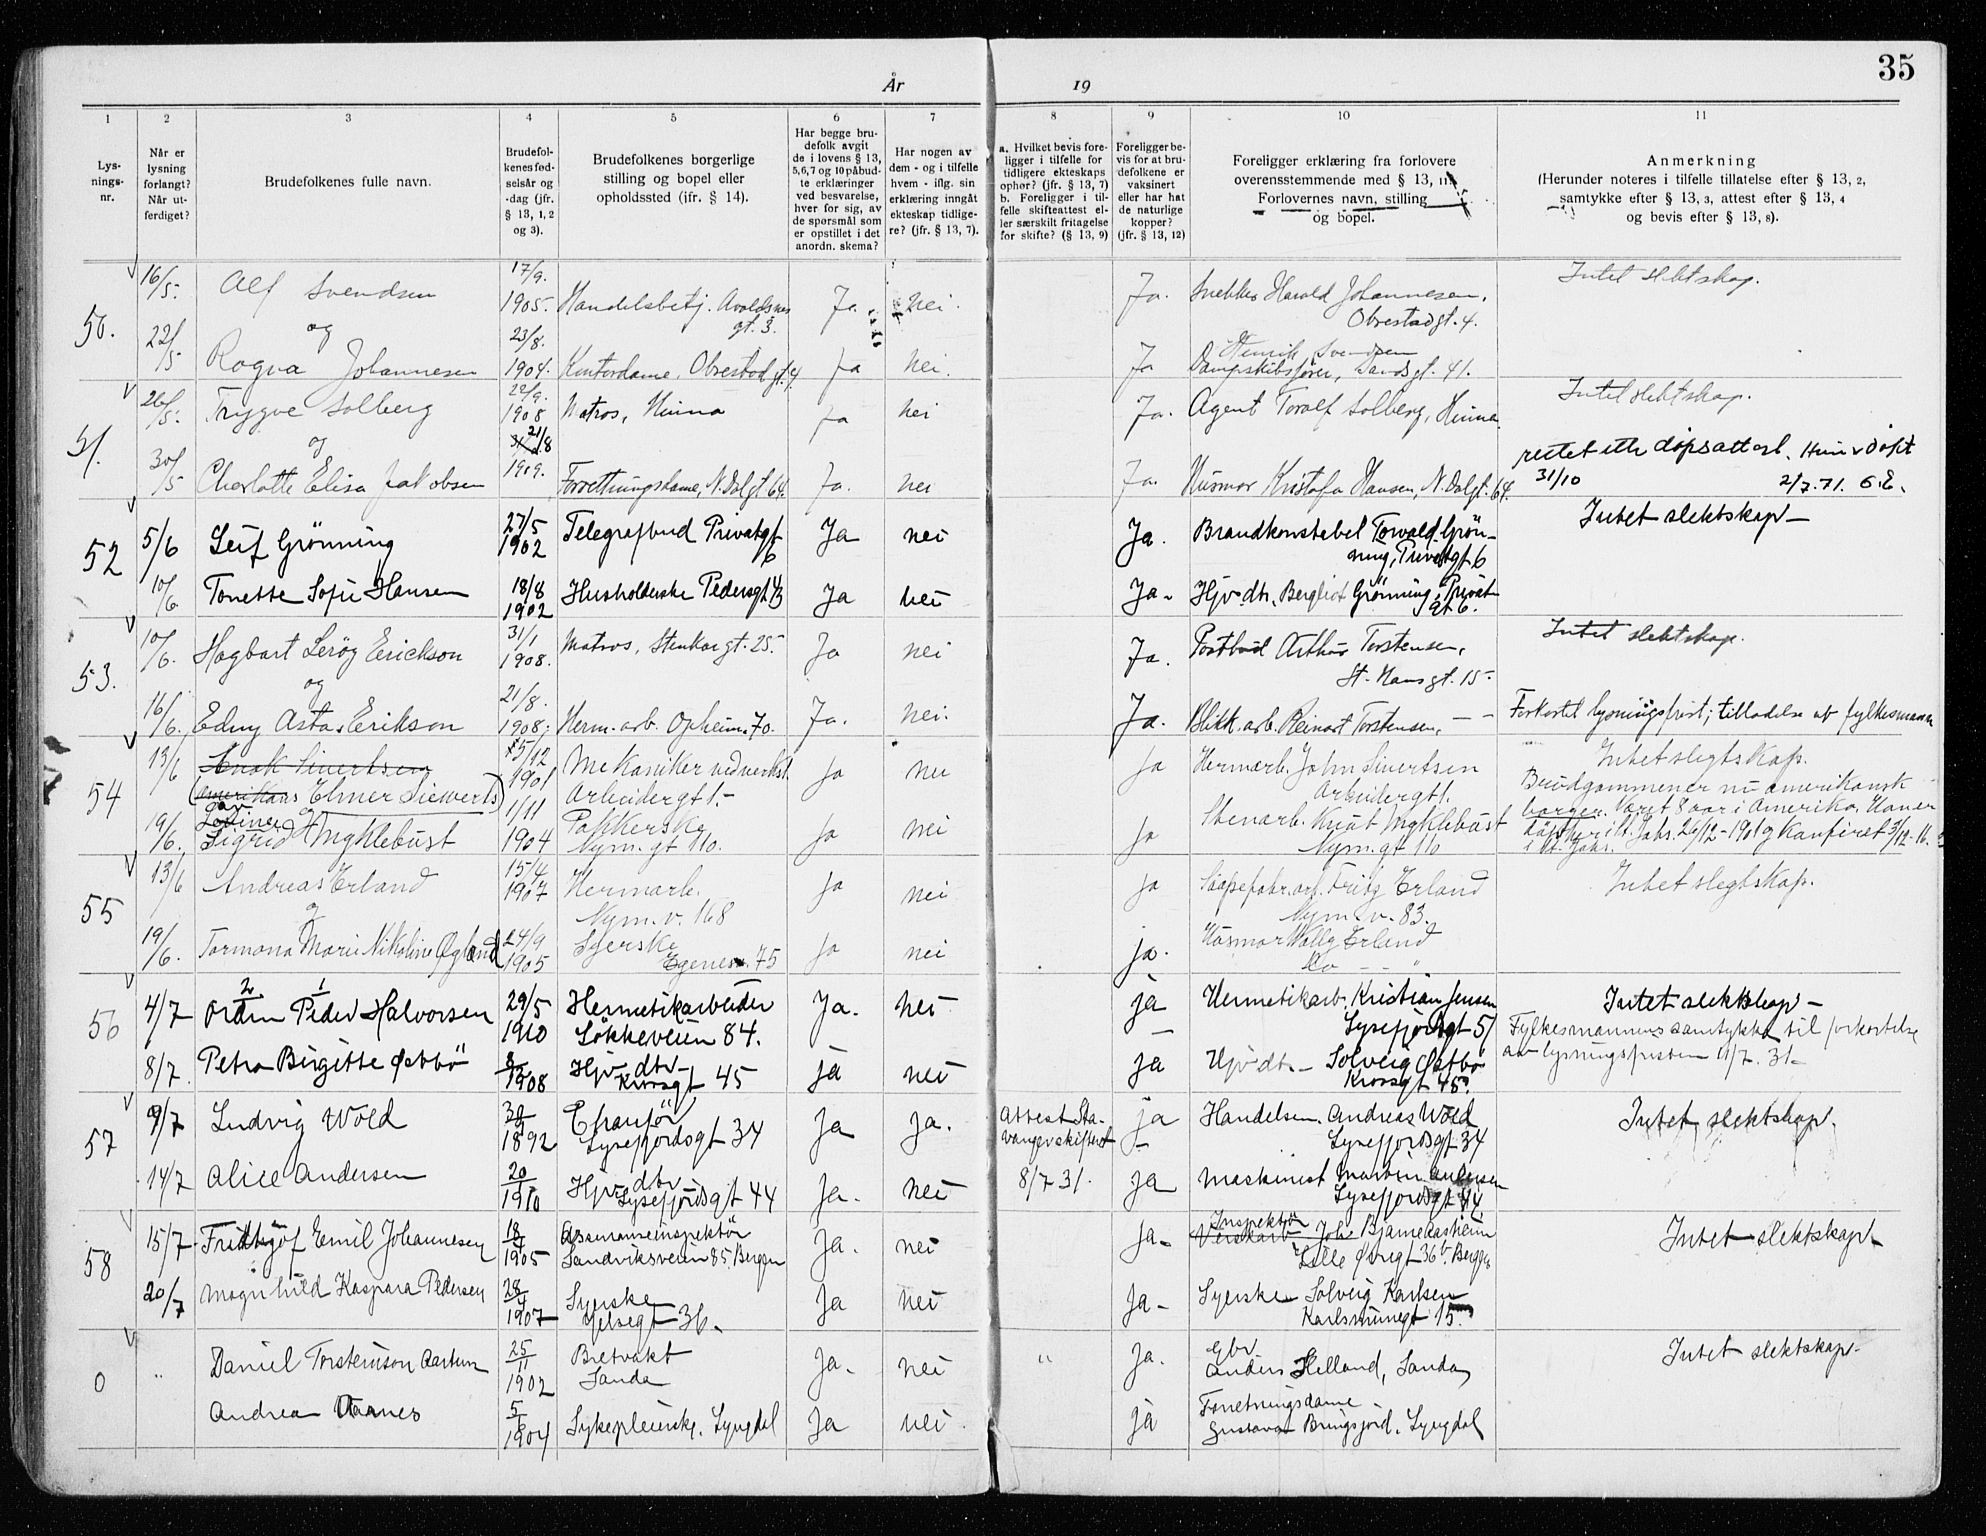 35
År 19
1 2 3 4 5 6 7 8 9 10 11
Lys-
nings-
nr.
Når er
lysning
forlangt?
Når ut-
ferdiget?
Brudefolkenes fulle navn.
Brudefol-
kenes fød-
selsår og
-dag (jfr.
§ 13, 1, 2
og 3).
Brudefolkenes borgerlige
stilling og bopel eller
opholdssted (ifr. § 14).
Har begge bru-
defolk avgit
de i lovens § 13,
5,6,7 og 10 påbud-
te erklæringer
ved besvarelse,
hver for sig, av
de spørsmål som
er opstillet i det
anordn. skema?
Har nogen av
dem - og i tilfelle
hvem - iflg. sin
erklæring inngått
ekteskap tidlige-
re? (jfr. § 13, 7).
a. Hvilket bevis fore-
ligger i tilfelle for
tidligere ekteskaps
ophør? (jfr. § 13, 7)
b. Foreligger i til-
felle skifteattest el-
ler særskilt fritagelse
for skifte? (§ 13, 9)
Foreligger be-
vis for at bru-
defolkene er
vaksinert
eller har hat
de naturlige
kopper?
(jfr. § 13, 12)
Foreligger erklæring fra forlovere
overensstemmende med § 13, 11?
Forlovernes navn, stilling
og bopel.
Anmerkning
(Herunder noteres i tilfelle tillatelse efter § 13, 2,
samtykke efter § 13, 3, attest efter § 13, 4
og bevis efter § 13, 8).
50. 16/5. Alf Svendsen 17/9. 1905. Handelsbetj. Avaldsnes
gt. 3. Ja. nei. Ja. Snekker Harald Johannesen,
Obrestadgt. 4. Intet slektskap.
og
22/5 Ragna Johannesen 23/8. 1904. Kontordame, Obrestad gt. 4. Ja nei. Ja Henrik Svendsen
Dampskibsfører, Sandsgt. 41.
51. 26/5. Trygve Solberg 22/9. 1908 Matros, Hinna Ja nei Ja. Agent Toralf Solberg, Hinna. Intet slektskap.
og
30/5 Charlotte Elisa Jakobsen 21/8 1909. Forretningsdame, N. Dalgt 64. Ja. nei Ja. Husmor Kristofa Hansen, N. Dalgt. 64.
31/10 2/7.71.
52 5/6 Leif Grönning 27/5 1902 Telegrafbud Privatgt
6 Ja nei Ja. Brandkonstabel Torvald Grön-
ning, Privatgt 6 Intet slektskap—
10/6 Tonette Sofie Hansen 18/8 1902 Husholderske Pedersgt 43 Ja nei Ja- Hjv. dtr. Bergliot Grönning, Privat-
gt 6.
53. 10/6. Hagbart Lerög Erickson 31/1 1908. Matros, Stenkargt. 25. Ja nei Ja. Postbud Arthur Torstensen,
St. Hansgt. 15. Intet slektskap.
og
16/6. Edny Asta Erikson 21/8. 1908. Herm. arb. Opheim. 70. Ja. nei. Ja. Blikk. arb. Reinart Torstensen, — — Forkortet lysningsfrist; tilladelse av fylkesmann
54 13/6 Enok Sivertsen 15/12 1901 Mekaniker ved verkst.
Arbeidergt 1.- Ja nei Ja Hermarb. John Sivertsen
Arbeidergt 1. Intet slegtskap.
(amerikans Elmer Siewerts)
og
19/6. Sigrid Myklebust 1/11 1904 Pakkerske
Nym. gt 110. Ja nei Ja Stenarb. Knut Myklebust
Nym. gt 110
Brudgommen er nu amerikansk
borger. Været 8 aar i Amerika.
55 13/6 Andreas Erland 15/4 1907 Hermarb.
Nym. v. 168 Ja nei Ja Saapefabr. arb. Fritz Erland
Nym. v. 83. Intet slegtskap.
og
19/6. Tormona Marie Nikoline Øgland 24/9 1905 Syerske
Egenes. 75 Ja nei ja. Husmor Wally Erland
Do — — "
56 4/7 Ordin Peder Halvorsen 29/5 1910 Hermetikarbeider
Løkkeveien 84. Ja. nei ja Hermetikarb. Kristian Jensen
Lysefjordgt 51 Intet slektskap—
8/7 Petra Birgitte Østbö 1908 Hjv. dtr-
Krossgt 45 ja nei ja Hjv. dtr. — Solveig Østbö
Krossgt 45. Fylkesmannens samtykke til forkortelse
av lysningsfristen 11/7. 31-
57 9/7 Ludvig Wold 1892 Chaufför
Lysefjordsgt 34 Ja ja. Attest Sta-
vanger skifteret
8/7 31. ja Handelsm. Andreas Wold
Lysefjordsgt 34 Intet slektskap.
14/7 Alice Andersen 1910 Hjv. dtr
Lysefjordsgt 44 Ja. nei ja Maskinist Martin Andersen
Lysefjordsgt 44
58 15/7 Fridtjof Emil Johannesen 1905 Assuranseinspektör
Sandviksveien 85. Bergen Ja. nei Ja- Inspektör
Bjarne Aasheim
Lille Øvregt 36b. Bergen Intet slektskapt
20/7 Magnhild Kaspara Pedersen 28/4 1907 Syerske
Jelsegt 36. Ja nei Ja- Syerske Solveig Karlsen
Karlsminnegt 15.
0 " Daniel Torsteinson Aartun 25/11 1902 Bretvakt
Sanda Ja. nei " Ja. Gbr
Anders Helland, Sanda Intet slektskap-
Andrea Vaanes 1904 Sykepleierske. Lyngdal Ja nei ja Forretningsdame
Gustava Bringsjord. Lyngdal